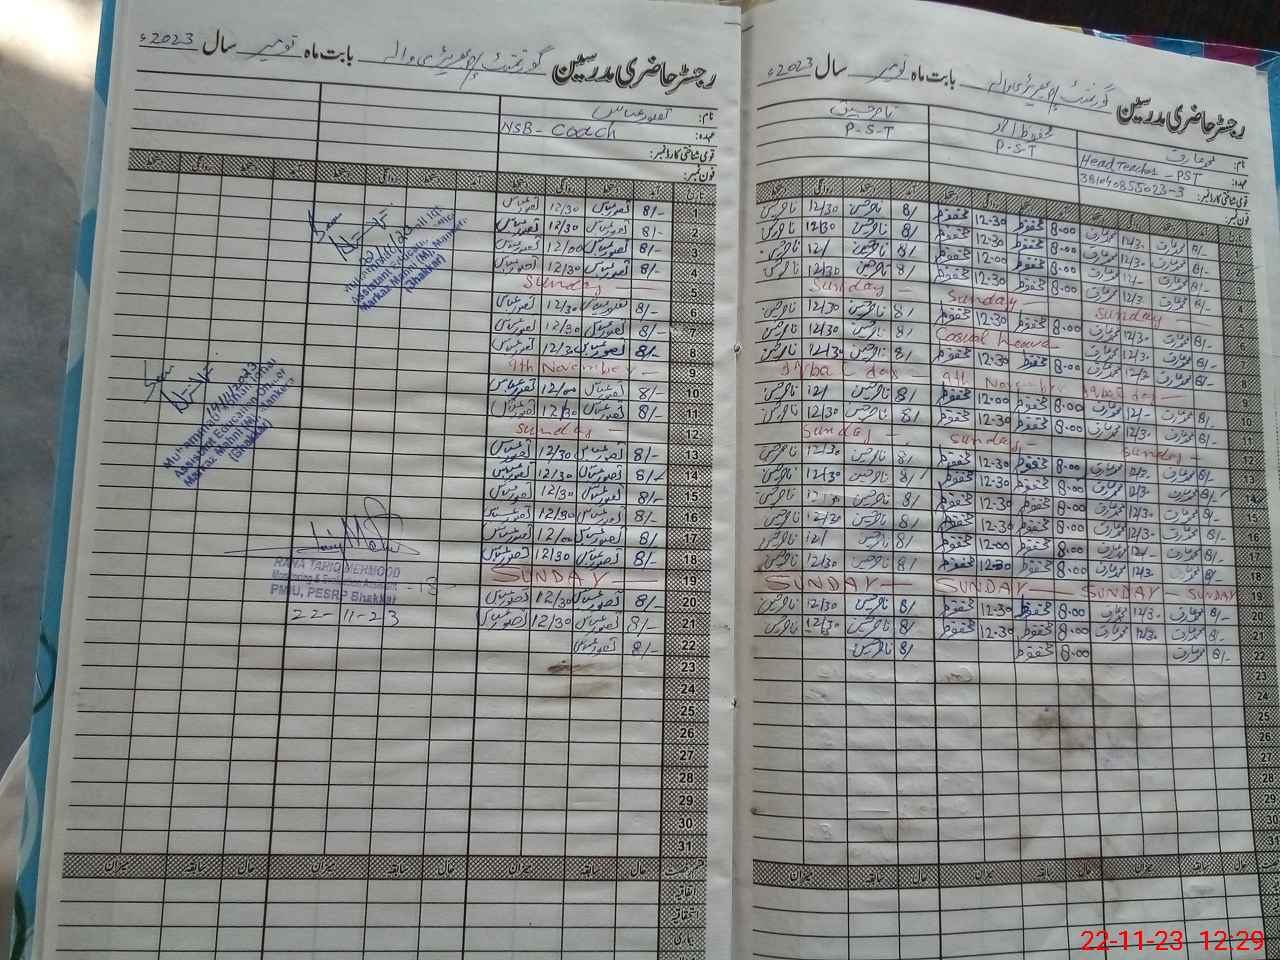 رجسٹر حاضری مدرسین گورنمنٹ بابت ماہ نومبر سال 2023ء
نام: محمد عارف
محفوظ احمد
ناصر حسین
عہدہ: Head Teacher - PST
P.S.T
P-S-T
قومی شناختی کارڈ نمبر: 38104-0855023-3
فون نمبر:
تاریخ آمد دستخط روانگی دستخط آمد دستخط روانگی دستخط آمد دستخط روانگی دستخط
1 8/- محمد عارف 12/30 محمد عارف 8.00 محفوظ 12.30 محفوظ 8/ ناصر حسین 12/30 ناصر حسین
2 8/- محمد عارف 12/30 محمد عارف 8.00 محفوظ 12.30 محفوظ 8/ ناصر حسین 12/30 ناصر حسین
3 8/- محمد عارف 12/- محمد عارف 8.00 محفوظ 12.00 محفوظ 8/ ناصر حسین 12/ ناصر حسین
4 8/- محمد عارف 12/30 محمد عارف 8.00 محفوظ 12.30 محفوظ 8/ ناصر حسین 12/30 ناصر حسین
5 Sunday — Sunday — Sunday —
6 8/- محمد عارف 12/30 محمد عارف 8.00 محفوظ 12.30 محفوظ 8/ ناصر حسین 12/30 ناصر حسین
7 8/- محمد عارف 12/30 محمد عارف Casual Leave 8/ ناصر حسین 12/30 ناصر حسین
8 8/- محمد عارف 12/30 محمد عارف 8.00 محفوظ 12.30 محفوظ 8/ ناصر حسین 12/30 ناصر حسین
9 9th November Iqbal day —
10 8/- محمد عارف 12/- محمد عارف 8.00 محفوظ 12.00 محفوظ 8/ ناصر حسین 12/ ناصر حسین
11 8/- محمد عارف 12/30 محمد عارف 8.00 محفوظ 12.30 محفوظ 8/ ناصر حسین 12/30 ناصر حسین
12 Sunday — Sunday — Sunday —
13 8/- محمد عارف 12/30 محمد عارف 8.00 محفوظ 12.30 محفوظ 8/ ناصر حسین 12/30 ناصر حسین
14 8/- محمد عارف 12/30 محمد عارف 8.00 محفوظ 12.30 محفوظ 8/ ناصر حسین 12/30 ناصر حسین
15 8/- محمد عارف 12/30 محمد عارف 8.00 محفوظ 12.30 محفوظ 8/ ناصر حسین 12/30 ناصر حسین
16 8/- محمد عارف 12/30 محمد عارف 8.00 محفوظ 12.30 محفوظ 8/ ناصر حسین 12/30 ناصر حسین
17 8/- محمد عارف 12/- محمد عارف 8.00 محفوظ 12.00 محفوظ 8/ ناصر حسین 12/ ناصر حسین
18 8/- محمد عارف 12/30 محمد عارف 8.00 محفوظ 12.30 محفوظ 8/ ناصر حسین 12/30 ناصر حسین
19 SUNDAY — SUNDAY — SUNDAY — SUNDAY
20 8/- محمد عارف 12/30 محمد عارف 8.00 محفوظ 12.30 محفوظ 8/ ناصر حسین 12/30 ناصر حسین
21 8/- محمد عارف 12/30 محمد عارف 8.00 محفوظ 12.30 محفوظ 8/ ناصر حسین 12/30 ناصر حسین
22 8/- محمد عارف 8.00 محفوظ 8/ ناصر حسین
23
24
25
26
27
28
29
30
31
حال سابقہ میزان حال سابقہ میزان حال سابقہ میزان
رجسٹر حاضری مدرسین گورنمنٹ بابت ماہ نومبر سال 2023ء
نام: تصور عباس
عہدہ: NSB - Coach
قومی شناختی کارڈ نمبر:
فون نمبر:
تاریخ آمد دستخط روانگی دستخط آمد دستخط روانگی دستخط آمد دستخط روانگی دستخط
1 8/- تصور عباس 12/30 تصور عباس
2 8/- تصور عباس 12/30 تصور عباس
3 8/- تصور عباس 12/00 تصور عباس
4 8/- تصور عباس 12/30 تصور عباس
5 Sunday —
6 8/- تصور عباس 12/30 تصور عباس
7 8/- تصور عباس 12/30 تصور عباس
8 8/- تصور عباس 12/30 تصور عباس
9 9th November - Iqbal day —
10 8/- تصور عباس 12/00 تصور عباس
11 8/- تصور عباس 12/30 تصور عباس
12 Sunday —
13 8/- تصور عباس 12/30 تصور عباس
14 8/- تصور عباس 12/30 تصور عباس
15 8/- تصور عباس 12/30 تصور عباس
16 8/- تصور عباس 12/30 تصور عباس
17 8/- تصور عباس 12/00 تصور عباس
18 8/- تصور عباس 12/30 تصور عباس
19 SUNDAY —
20 8/- تصور عباس 12/30 تصور عباس
21 8/- تصور عباس 12/30 تصور عباس
22 8/- تصور عباس
23
24
25
26
27
28
29
30
31
رخصت حال سابقہ میزان حال سابقہ میزان حال سابقہ میزان
اتفاقیہ
استحقاقیہ
بیماری
Assistant Education Officer
Markaz Mahni (M) Mankera
(Bhakkar)
14/11/2023
Assistant Education Officer
Markaz Mahni (M) Mankera
(Bhakkar)
RANA TARIQ MEHMOOD
PMIU, PESRP Bhakkar
- 18 -
22-11-23
22-11-23 12:29